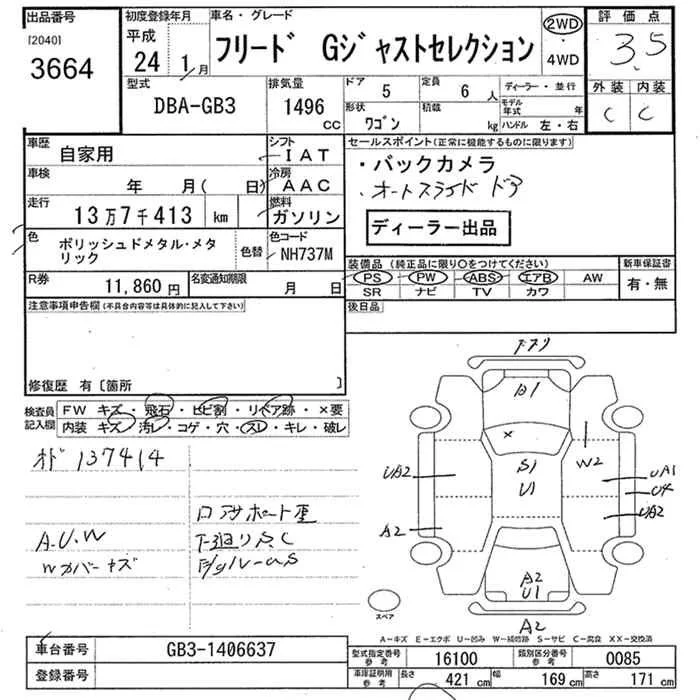 出品番号
[2040]
3664
初度登録年月
平成
24 1月
車名・グレード
フリード Gジャストセレクション
2WD
・
4WD
評価点
3.5
外装 内装
C C
型式
DBA-GB3
排気量
1496
CC
ドア
5
定員
6 人
形状
ワゴン
積載
kg
ディーラー・並行
モデル年式 年
ハンドル 左・右
車歴
自家用
シフト
IAT
車検
年 月( 日)
冷房
AAC
走行
13万7千413 km
燃料
ガソリン
色
ポリッシュドメタル・メタリック
色替
色コード
NH737M
R券
11,860 円
名変通知期限
月 日
セールスポイント(正常に機能するものに限ります)
・バックカメラ
・オートスライドドア
ディーラー出品
装備品 (純正品に限り○をつけてください)
PS PW ABS エアB AW
SR ナビ TV カワ
新車保証書
有・無
後日品
注意事項申告欄(不具合内容等は具体的に記入して下さい)
修復歴 有〔箇所 〕
検査員記入欄
FW キズ・飛石・ヒビ割・リペア跡・×要
内装 キズ・汚レ・コゲ・穴・スレ・キレ・破レ
オド 137414
A.U.W
Wカバーキズ
下廻りS.C
B1
×
S1
U1
W2
UA2
A2
UA1
U4
UA2
A2
U1
A2
スペア
A-キズ E-エクボ U-凹み W-補修跡 S-サビ C-腐食 XX-交換済
車台番号
GB3-1406637
登録番号
型式指定番号
参考
16100
類別区分番号
参考
0085
車庫証明用
参考
長さ
421 cm
幅
169 cm
高さ
171 cm